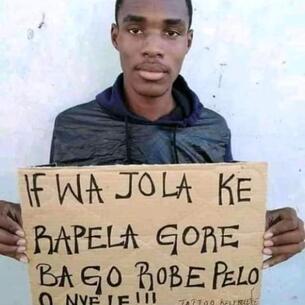 IF WA JOLA KE
RAPELA GORE
BA GO ROBE PELO
O NYELE!!!